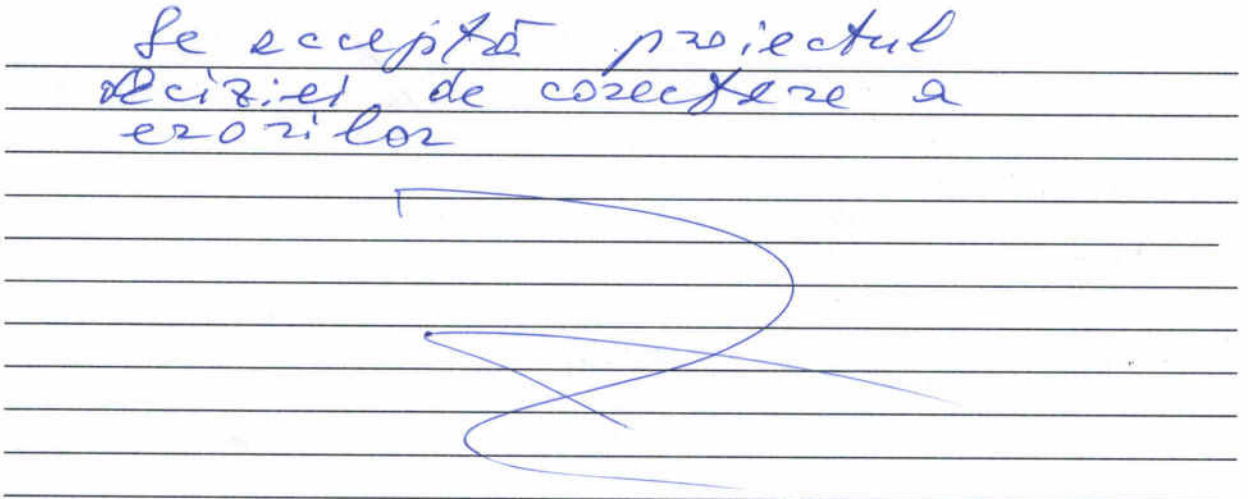 Se acceptă proiectul
deciziei de corectare a
erorilor